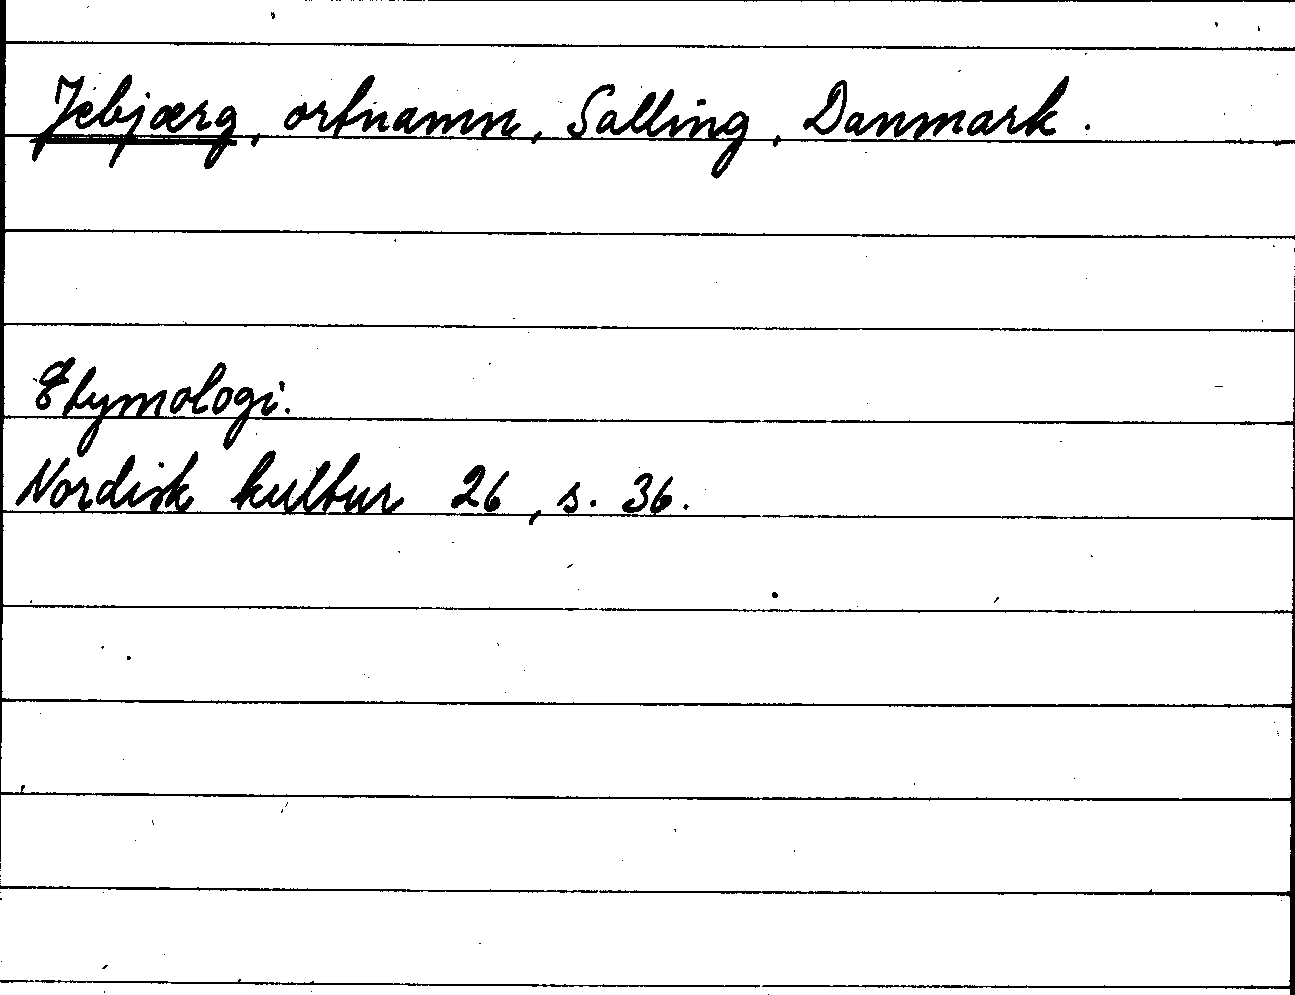 Jebjærg, ortnamn, Salling, Danmark.
Etymologi.
Nordisk kultur 26, s. 36.